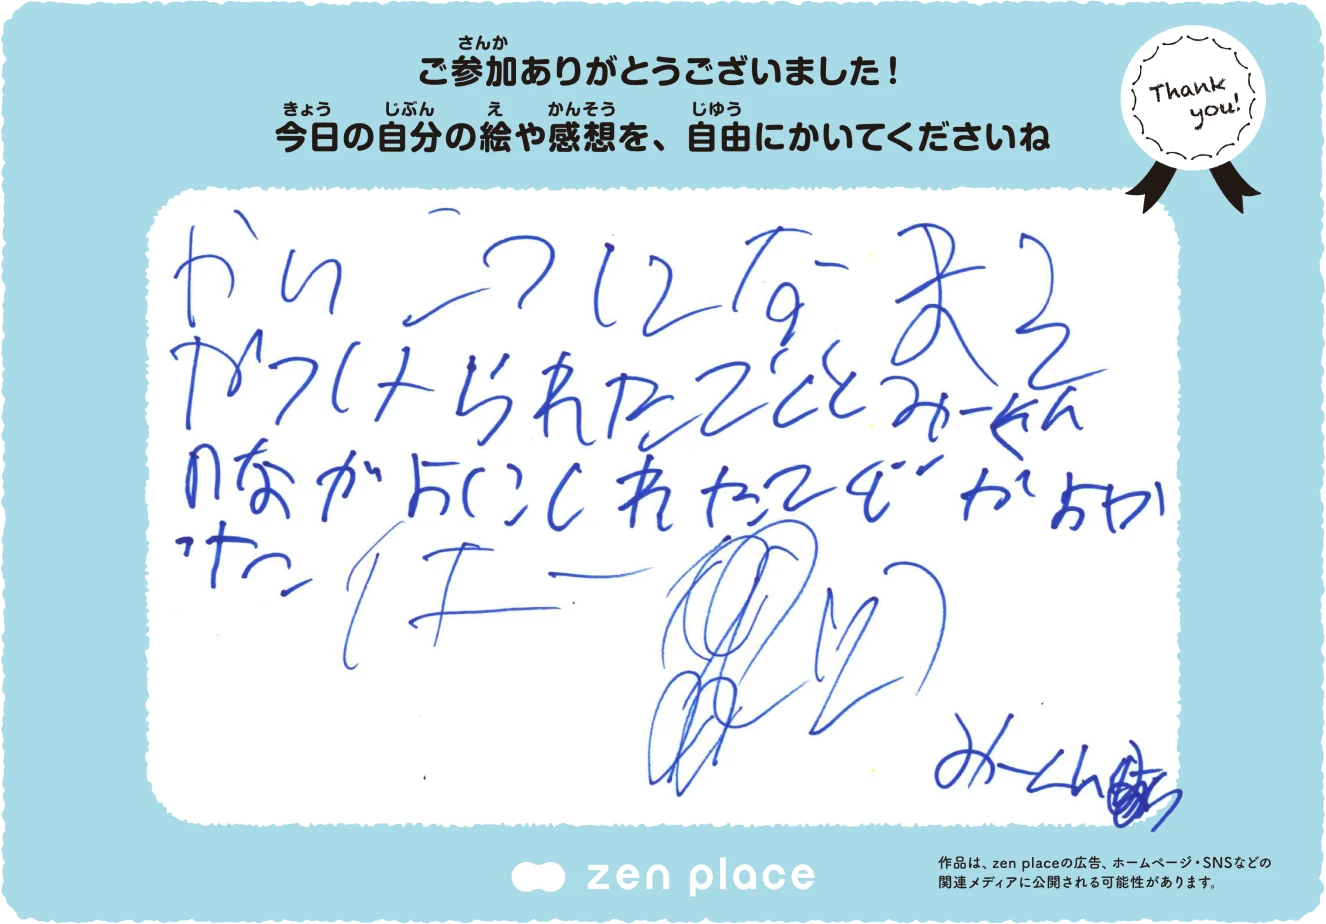 さんか
ご参加ありがとうございました!
きょう じぶん え かんそう じゆう
今日の自分の絵や感想を、自由にかいてくださいね
Thank
you!
からつになまえ
がつけられたてことみーくん
のながよくしれたてぞがよか
った(は一
みーくん
zen place
作品は、zen placeの広告、ホームページ・SNSなどの
関連メディアに公開される可能性があります。